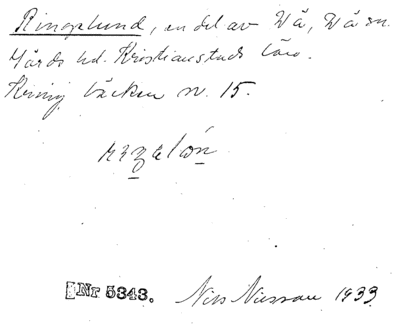 Ringslund, en del av Vä, Vä sn.
Gärds hd. Kristianstads län.
Kring bäcken nr. 15.
Nr 5343. Nils Nilsson 1933